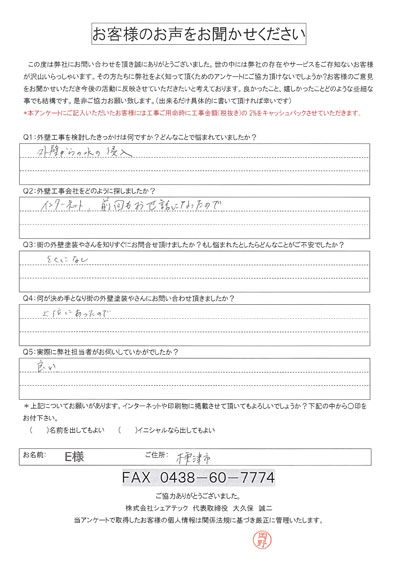 お客様のお声をお聞かせください
この度は弊社にお問い合わせを頂き誠にありがとうございました。世の中には弊社の存在やサービスをご存知ないお客様
が沢山いらっしゃいます。その方たちに弊社をよく知って頂くためのアンケートにご協力頂けないでしょうか?お客様のご意見
をお聞かせいただき今後の活動に反映させていただきたいと考えております。良かったこと、嬉しかったことどのような些細な
事でも結構です。是非ご協力お願い致します。(出来るだけ具体的に書いて頂ければ幸いです)
*本アンケートにご記入いただいたお客様には工事ご用命時に工事金額(税抜き)の2%をキャッシュバックさせていただきます。
Q1:外壁工事を検討したきっかけは何ですか?どんなことで悩まれていましたか?
外壁からの水の侵入
Q2:外壁工事会社をどのように探しましたか?
インターネット、前回もお世話になったので
Q3:街の外壁塗装やさんを知りすぐにお問合せ頂けましたか?もし悩まれたとしたらどんなことがご不安でしたか?
とくになし
Q4:何が決め手となり街の外壁塗装やさんにお問い合わせ頂きましたか?
にあったので
Q5:実際に弊社担当者がお伺いしていかがでしたか?
良い
*上記についてお願いがあります。インターネットや印刷物に掲載させて頂いてもよろしいでしょうか?下記の中から〇印を
をお付下さい。
( )名前を出してもよい ( )イニシャルなら出してもよい
お名前: E様 ご住所: 木更津市
FAX 0438-60-7774
ご協力ありがとうございました。
株式会社シェアテック 代表取締役 大久保 誠二
当アンケートで取得したお客様の個人情報は関係法規に基づき厳正に管理いたします。